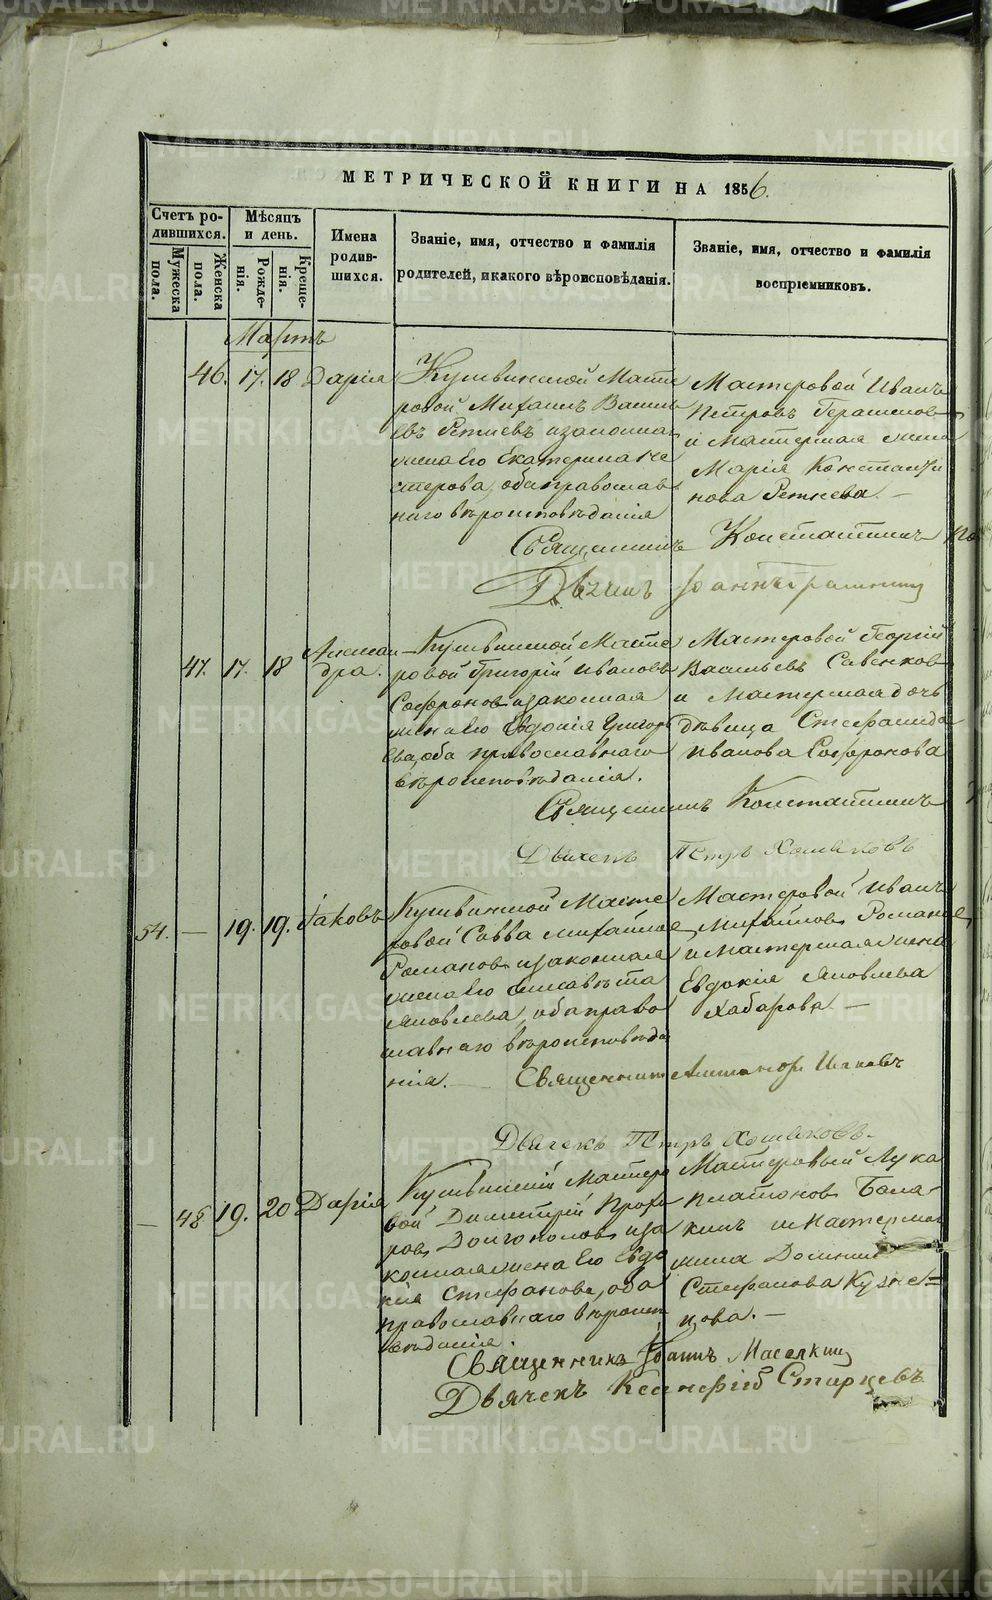 МЕТРИЧЕСКОЙ КНИГИ НА 1856.
Счетъ ро-
дившихся.
Мужеска
пола.
Женска
пола.
Мѣсяцъ
и день.
Рожде-
нія.
Креще-
нія.
Имена
родив-
шихся.
Званіе, имя, отчество и фамилія
родителей, и какого вѣроисповѣданія.
Званіе, имя, отчество и фамилія
воспріемниковъ.
Мартъ
46. 17. 18 Дарія
Кушвинской Масте
ровой Михаилъ Василь
евъ и законная
жена его Екатерина Не
стерова, оба православ
наго вѣроисповѣданія
Мастеровой Иванъ
Петровъ
и Мастерская жена
Марія Константи
нова
Священникъ Константинъ
Дьячекъ Іоаннъ
47. 17. 18 Алексан
дра.
Кушвинской Масте
ровой Григорій Ивановъ
Софроновъ и законная
жена его Евдокія Григорь
ева, оба православнаго
вѣроисповѣданія.
Мастеровой Георгій
Васильевъ Савенковъ
и Мастерская дочь
дѣвица Стефанида
Иванова Софронова
Священникъ Константинъ
Дьячекъ Петръ Хомяковъ
54. — 19. 19. Іаковъ
Кушвинской Масте
ровой Савва Михайловъ
Романовъ и законная
жена его Елисавета
Яковлева, оба право
славнаго вѣроисповѣда
нія.
Мастеровой Иванъ
Михайловъ Романовъ
и мастерская жена
Евдокія Яковлева
Хабарова. —
Священник
Дьячекъ Петръ Хомяковъ.
— 48 19. 20 Дарія
Кушвинскій Мастеро
вой Димитрій Прохо
ровъ Долгополовъ и за
конная жена его Евдо
кія Стефанова, оба
православнаго вѣроисп
овѣданія.
Мастеровый Лука
Платоновъ Бала-
кинъ и Мастерская
жена
Стефанова Кузне=
цова. —
Священникъ Іоаннъ
Дьячекъ Старцевъ
METRIKI.GASO-URAL.RU